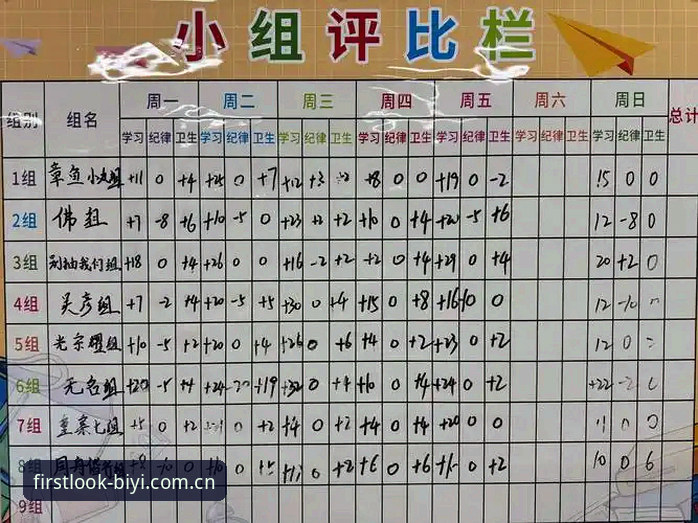 小组评比栏
组别 组名 周一 周二 周三 周四 周五 周六 周日 总计
学习 纪律 卫生 学习 纪律 卫生 学习 纪律 卫生 学习 纪律 卫生 学习 纪律 卫生 学习 纪律 卫生 学习 纪律 卫生
1组 章鱼小丸组 +11 0 +4 +25 0 +7 +12 +3 +8 0 0 +19 0 -2 15 0 0
2组 佛组 +7 -8 +6 +10 -5 0 +23 +2 +2 +10 0 +4 +20 -5 +6 12 -8 0
3组 别抽我们组 +18 0 +4 +26 0 0 +16 -2 +2 +2 0 +4 +29 0 +4 20 +2 0
4组 吴彦组 +7 -2 +4 +20 -5 +5 +30 0 +4 +15 0 +8 +16 -10 0 12 -10 0
5组 光宗耀组 +10 -5 +2 +20 0 +4 +26 0 +6 +4 0 +2 +23 0 +2 12 0
6组 无名组 +20 -5 +4 +24 +19 +32 0 +4 +10 0 +4 +24 0 +2 +22
7组 重案七组 +5 0 +2 0 +2 +4 0 +2 +4 0 +4 +20 0 0 0 0
8组 0 +10 0 0 +2 +6 0 +6 0 +2 10 0 6
firstlook-biyi.com.cn
9组